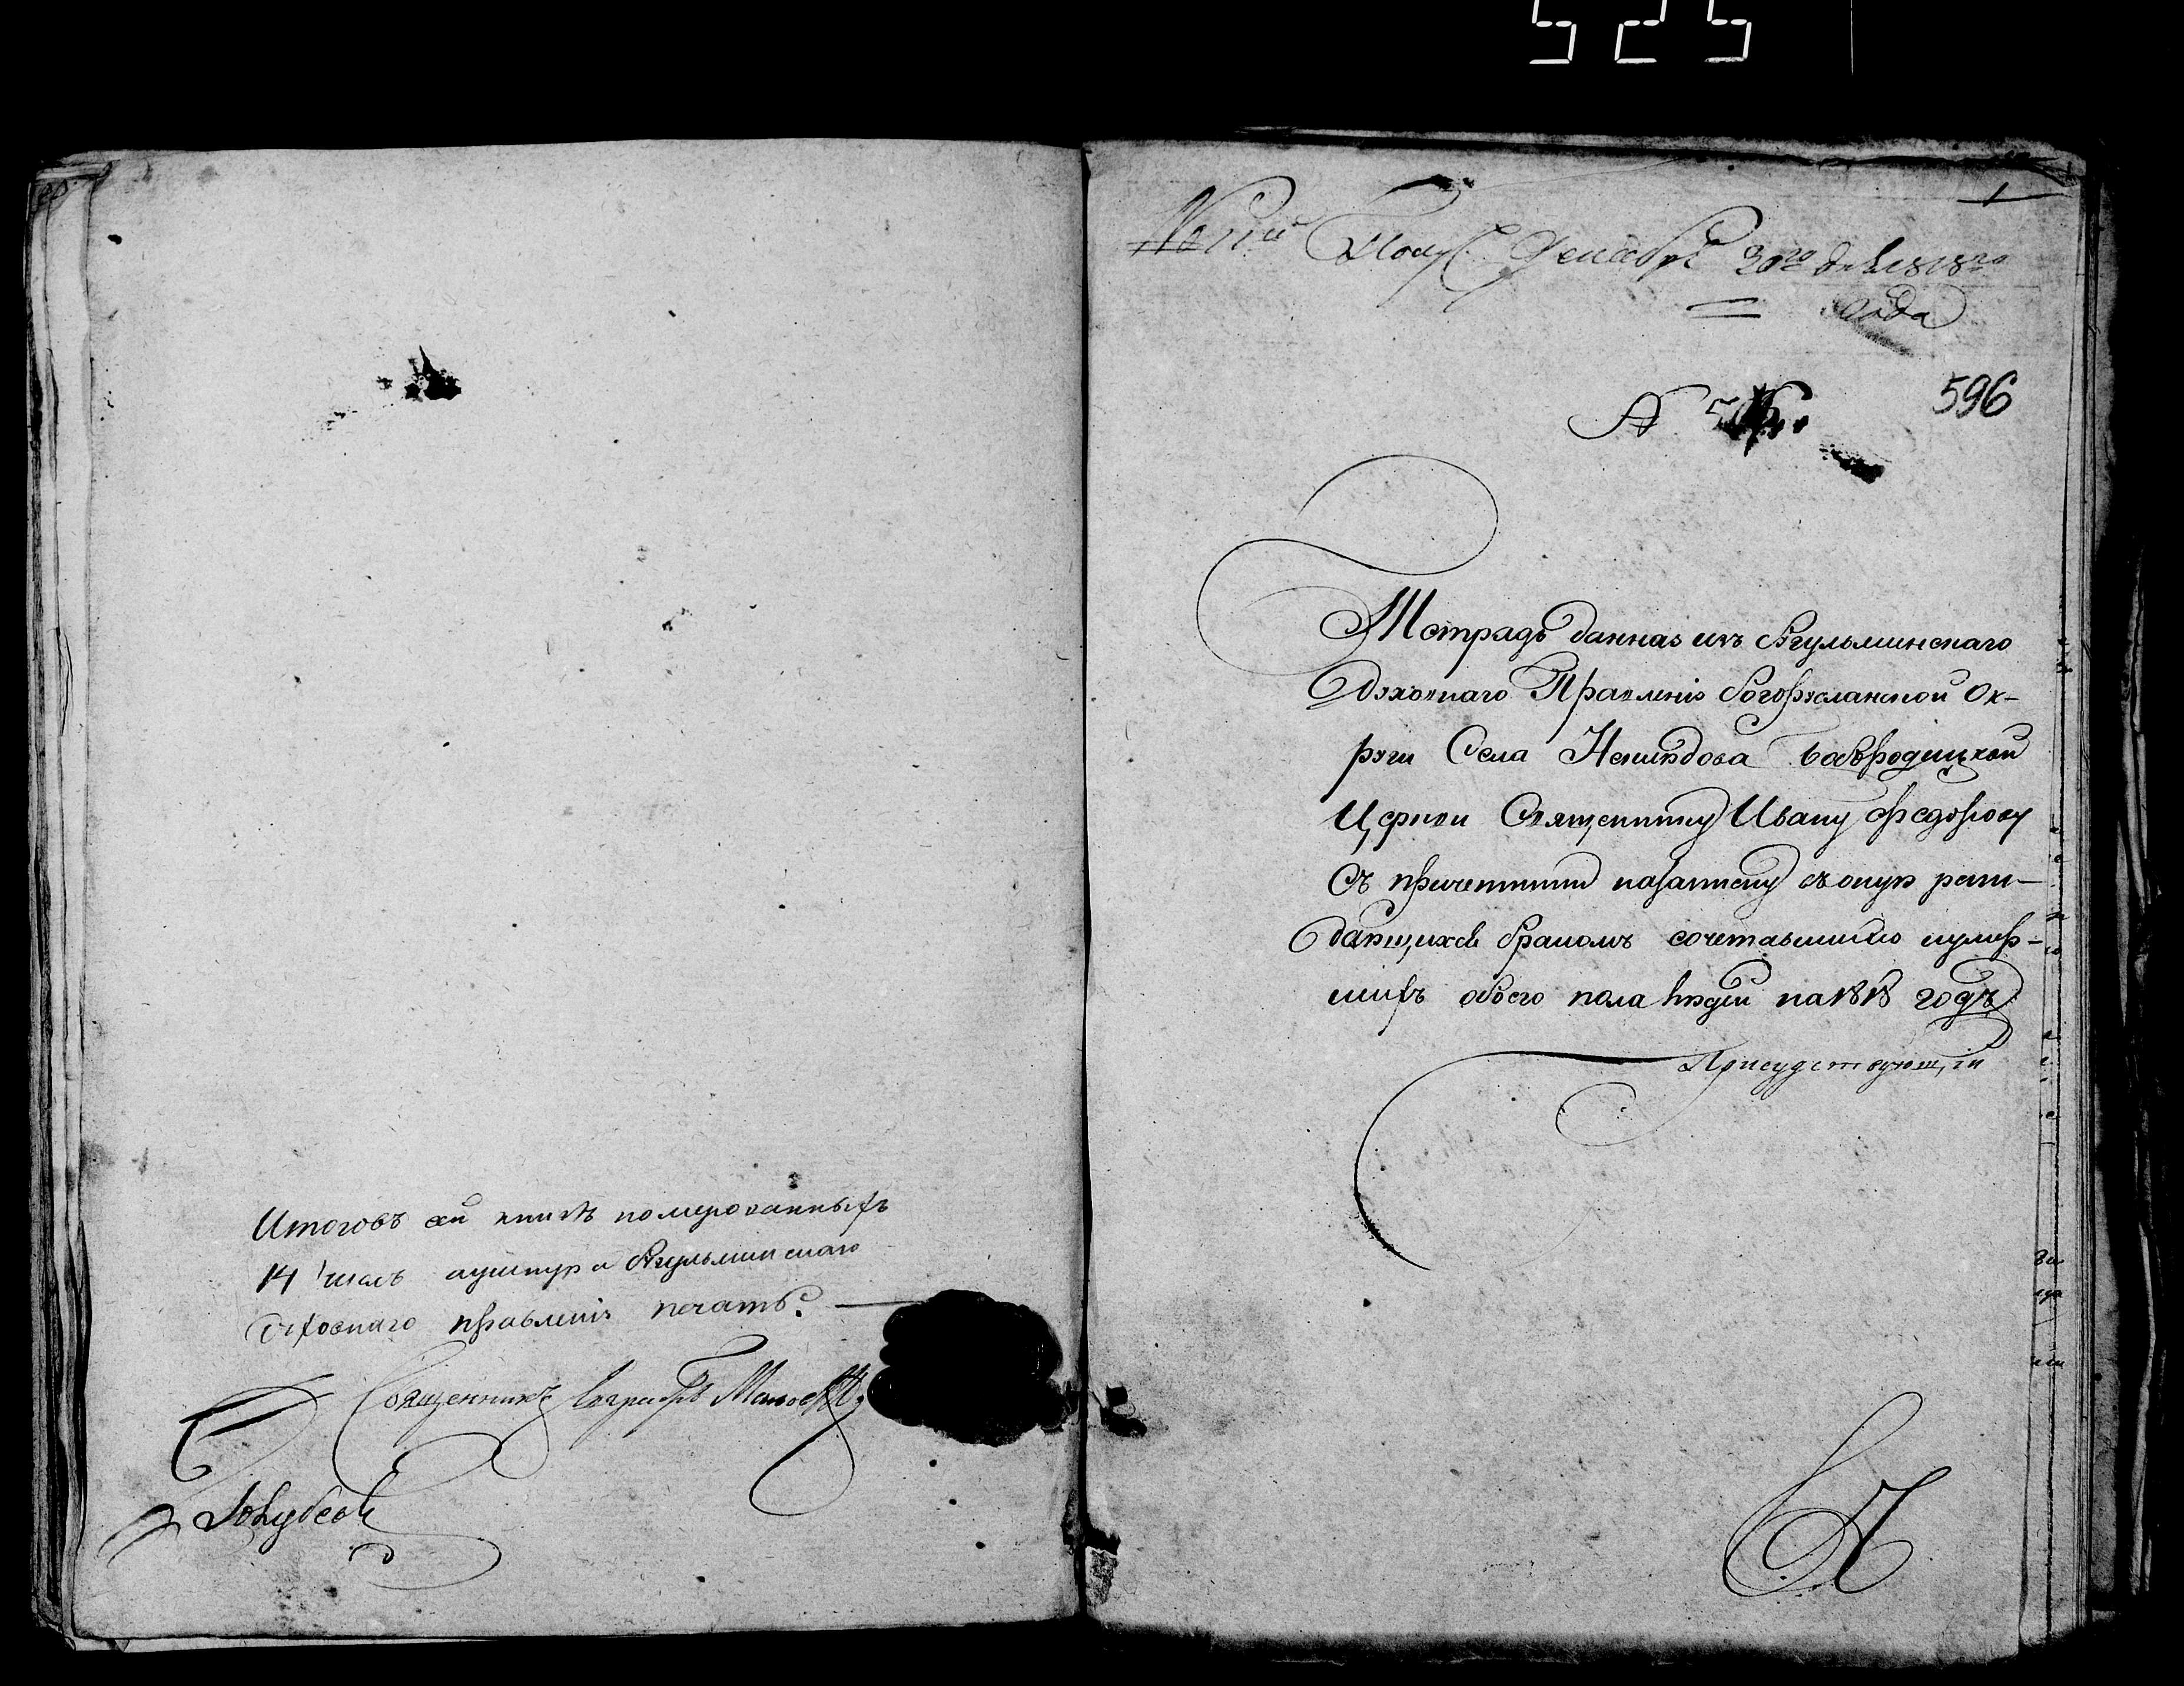 525
Итогов сей книгѣ номерованныхъ
14 числъ Бугульминскаго
духовнаго правленія печать.
Священникъ Евграфъ
1
Декабря 30го дня 1818го
года
596
Тетрадь данная изъ Бугульминскаго
Духовнаго Правленія Богорусланской Ок-
руги Села Неклюдова Богородицкой
Церкви Священнику Ивану Федорову
Съ причетники на записку въ оную раж-
дающихся бракомъ сочетавшихся и умер-
шихъ обоего пола людей на 1818 годъ
Присудствующій